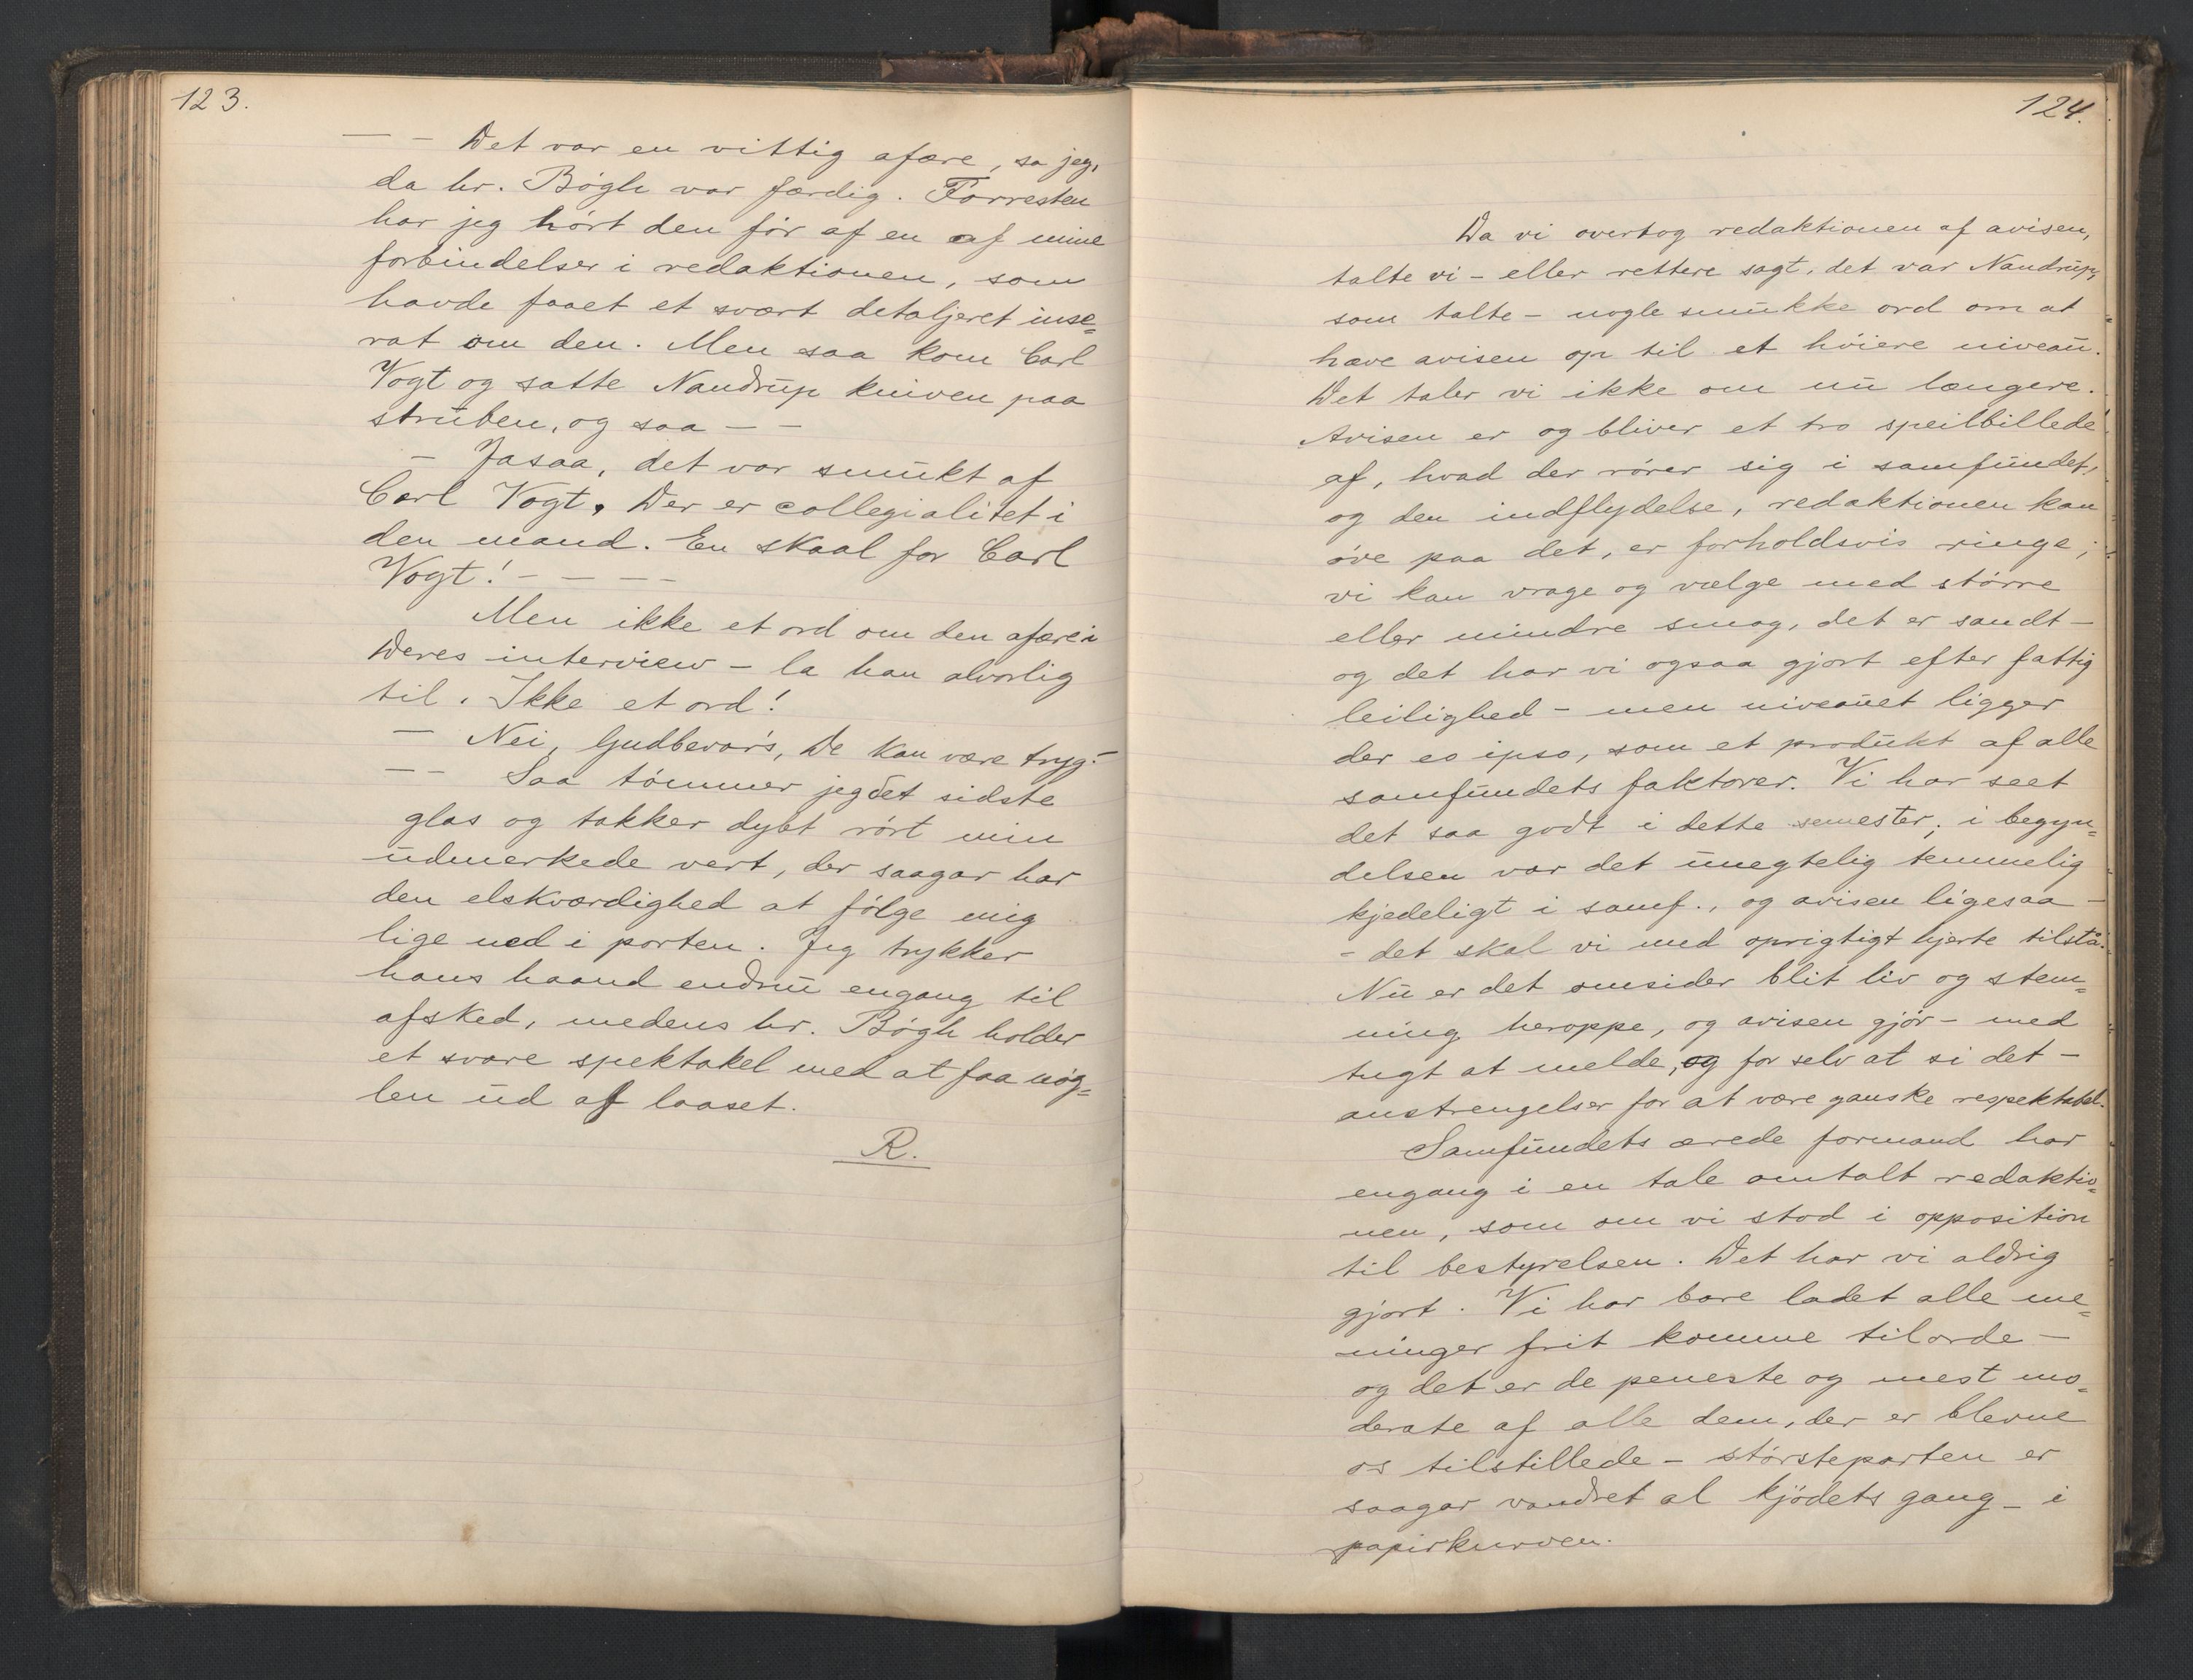 123.
— – Det var en vittig afære, sa jeg,
da hr. Bøgh var færdig. Forresten
har jeg hørt den før af en af mine
forbindelser i redaktionen, som
havde faaet et svært detaljeret inse=
rat om den. Men saa kom Carl
Vogt og satte Nandrup kniven paa
struben, og saa – –
– Jasaa, det var smukt af
Carl Vogt. Der er collegialitet i
den mand. En skaal for Carl
Vogt! – – – –
Men ikke et ord om den afære i
Deres interview – la han alvorlig
til. Ikke et ord!
– Nei, Gudbevar's, De kan være tryg. –
– – Saa tømmer jeg det sidste
glas og takker dybt rørt min
udmerkede vert, der saagar har
den elskværdighed at følge mig
lige ned i porten. Jeg trykker
hans haand endnu engang til
afsked, medens hr. Bøgh holder
et svare spektakel med at faa nøg=
len ud af laaset.
R.
124.
Da vi overtog redaktionen af avisen,
talte vi – eller rettere sagt, det var Nandrup,
som talte – nogle smukke ord om at
hæve avisen op til et høiere niveau.
Det taler vi ikke om nu længere.
Avisen er og bliver et tro speilbillede
af, hvad der rører sig i samfundet,
og den indflydelse, redaktionen kan
øve paa det, er forholdsvis ringe;
vi kan vrage og vælge med større
eller mindre smag, det er sandt –
og det har vi ogsaa gjort efter fattig
leilighed – men niveauet ligger
der eo ipso, som et produkt af alle
samfundets faktorer. Vi har seet
det saa godt i dette semester; i begyn=
delsen var det unegtelig temmelig
kjedeligt i samf., og avisen ligesaa –
– det skal vi med oprigtigt hjerte tilstå.
Nu er det omsider blit liv og stem=
ning heroppe, og avisen gjør – med
tugt at melde, og for selv at si det –
anstrengelser for at være ganske respektabel.
Samfundets ærede formand har
engang i en tale omtalt redaktio=
nen, som om vi stod i opposition
til bestyrelsen. Det har vi aldrig
gjort. Vi har bare ladet alle me=
ninger frit komme tilorde –
og det er de peneste og mest mo=
derate af alle dem, der er blevne
os tilstillede – størsteparten er
saagar vandret al kjødets gang – i
papirkurven.